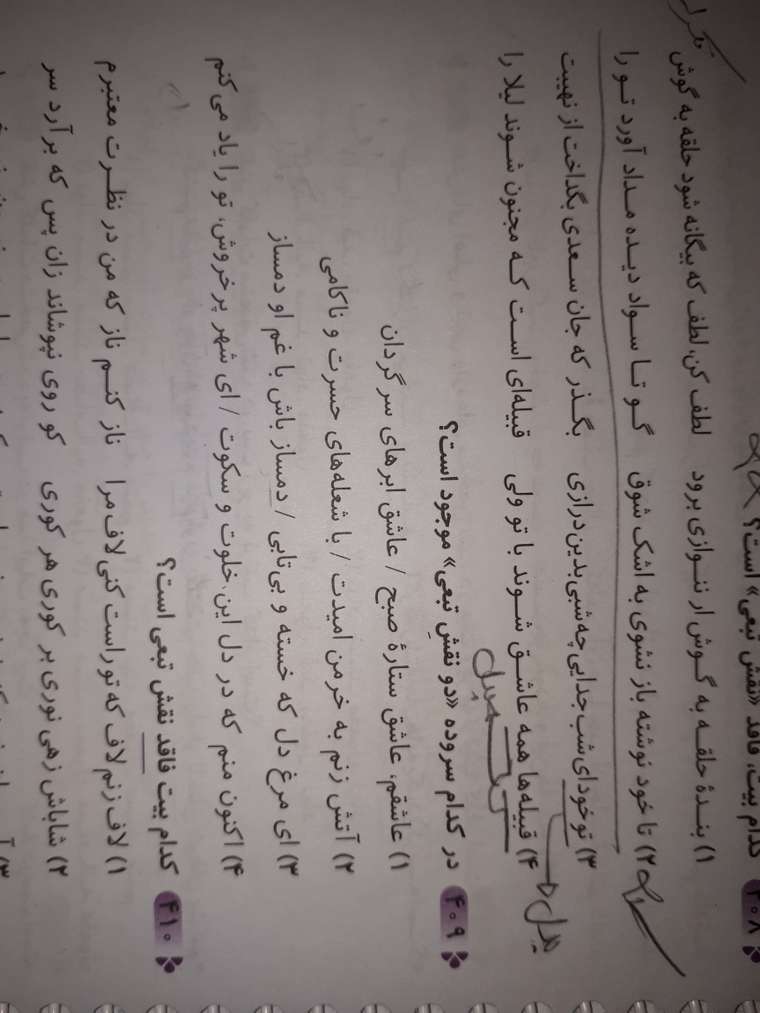 ۴۰۸ کدام بیت، فاقد «نقش تبعی» است؟
۱) بندهٔ حلقه به گوش ار ننوازی برود لطف کن، لطف که بیگانه شود حلقه به گوش
۲) تا خود نوشته باز نشوی به اشک شوق گو تا سواد دیده مداد آورد تو را
۳) تو خود ای شب جدایی چه شبی بدین درازی بگذر که جان سعدی بگداخت از نهیبت
۴) قبیله‌ها همه عاشق شوند با تو ولی قبیله‌ای است که مجنون شوند لیلا را
بدل
۴۰۹ در کدام سروده «دو نقشِ تبعی» موجود است؟
۱) عاشقم، عاشق ستارهٔ صبح / عاشق ابرهای سرگردان
۲) آتش زنم به خرمن امیدت / با شعله‌های حسرت و ناکامی
۳) ای مرغ دل که خسته و بی‌تابی / دمساز باش با غم او دمساز
۴) اکنون منم که در دل این خلوت و سکوت / ای شهر پرخروش، تو را یاد می‌کنم
۴۱۰ کدام بیت فاقد نقش تبعی است؟
۱) لاف زنم لاف که تو راست کنی لاف مرا ناز کنم ناز که من در نظرت معتبرم
۲) شاباش زهی نوری بر کوری هر کوری کو روی نپوشاند زان پس که برآرد سر